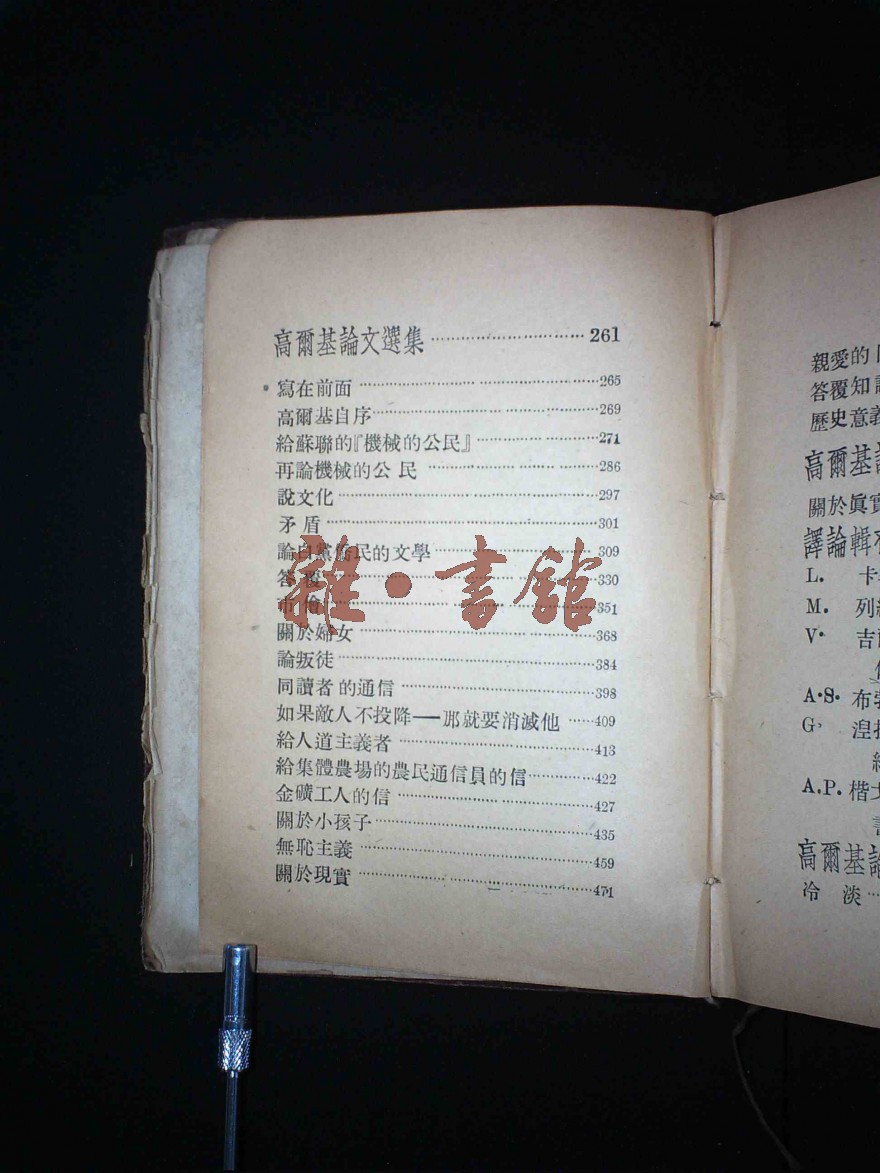 高爾基論文選集 261
寫在前面 265
高爾基自序 269
給蘇聯的『機械的公民』 271
再論機械的公民 286
說文化 297
矛盾 301
論白黨僑民的文學 309
答覆 330
市儈 351
關於婦女 368
論叛徒 384
同讀者的通信 398
如果敵人不投降——那就要消滅他 409
給人道主義者 413
給集體農場的農民通信員的信 422
金礦工人的信 427
關於小孩子 435
無恥主義 459
關於現實 471
雜·書館
親愛的
答覆知
歷史意義
高爾基論
關於眞實
譯論輯存
L. 卡
M. 列
V. 吉
A.S. 布
G, 涅
A.P. 楷
高爾基論
冷淡